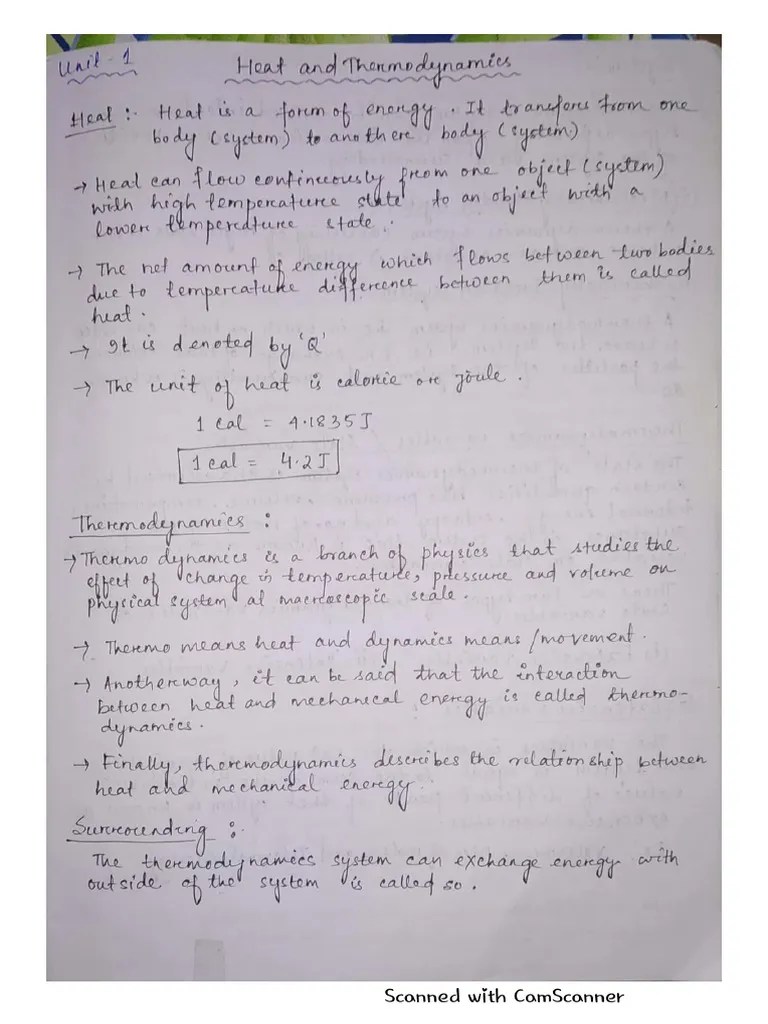 Unit - 1
Heat and Thermodynamics
Heat :- Heat is a form of energy. It transfers from one
body (system) to another body (system)
→ Heat can flow continuously from one object (system)
with high temperature state to an object with a
lower temperature state.
→ The net amount of energy which flows between two bodies
due to temperature difference between them is called
heat.
→ It is denoted by 'Q'
→ The unit of heat is calorie or joule.
1 cal = 4.1835 J
1 cal = 4.2 J
Thermodynamics :
→ Thermo dynamics is a branch of physics that studies the
effect of change in temperature, pressure and volume on
physical system at macroscopic scale.
→ Thermo means heat and dynamics means /movement.
→ Anotherway, it can be said that the interaction
between heat and mechanical energy is called thermo-
dynamics.
→ Finally, thermodynamics describes the relationship between
heat and mechanical energy.
Surrounding :-
The thermodynamics system can exchange energy with
outside of the system is called so.
Scanned with CamScanner